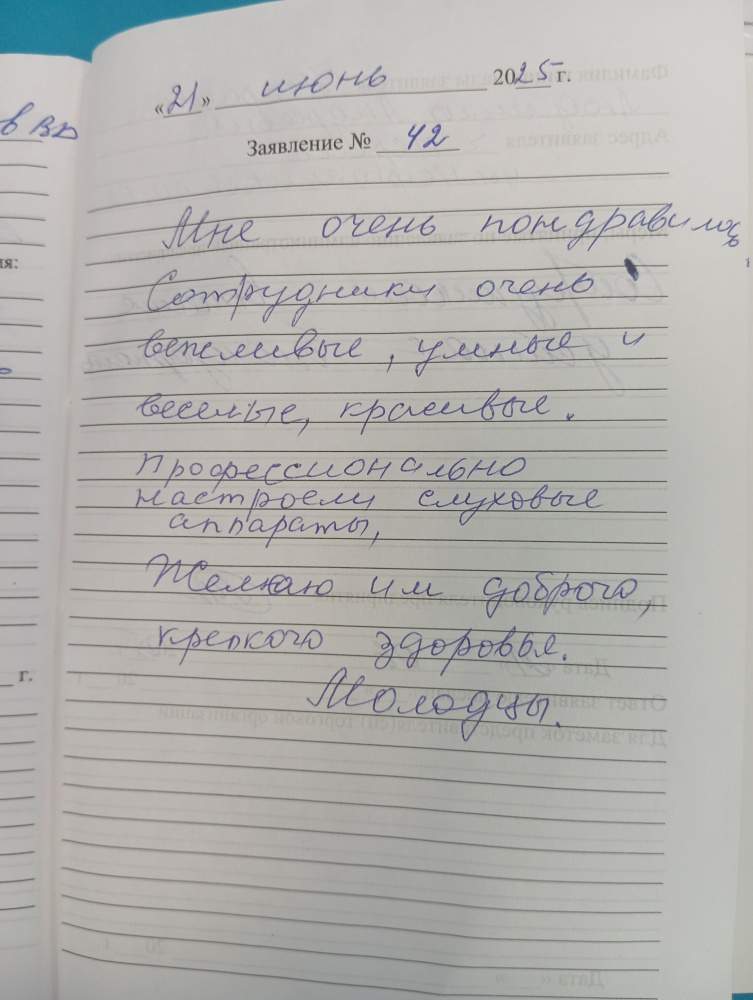 «21» июнь 2025 г.
Заявление № 42
в ВД
Мне очень пондравилось
Сотрудники очень
вежливые, умные и
веселые, красивые.
профессионально
настроели слуховые
аппараты,
Желаю им доброго,
крепкого здоровья.
Молодцы.
г.